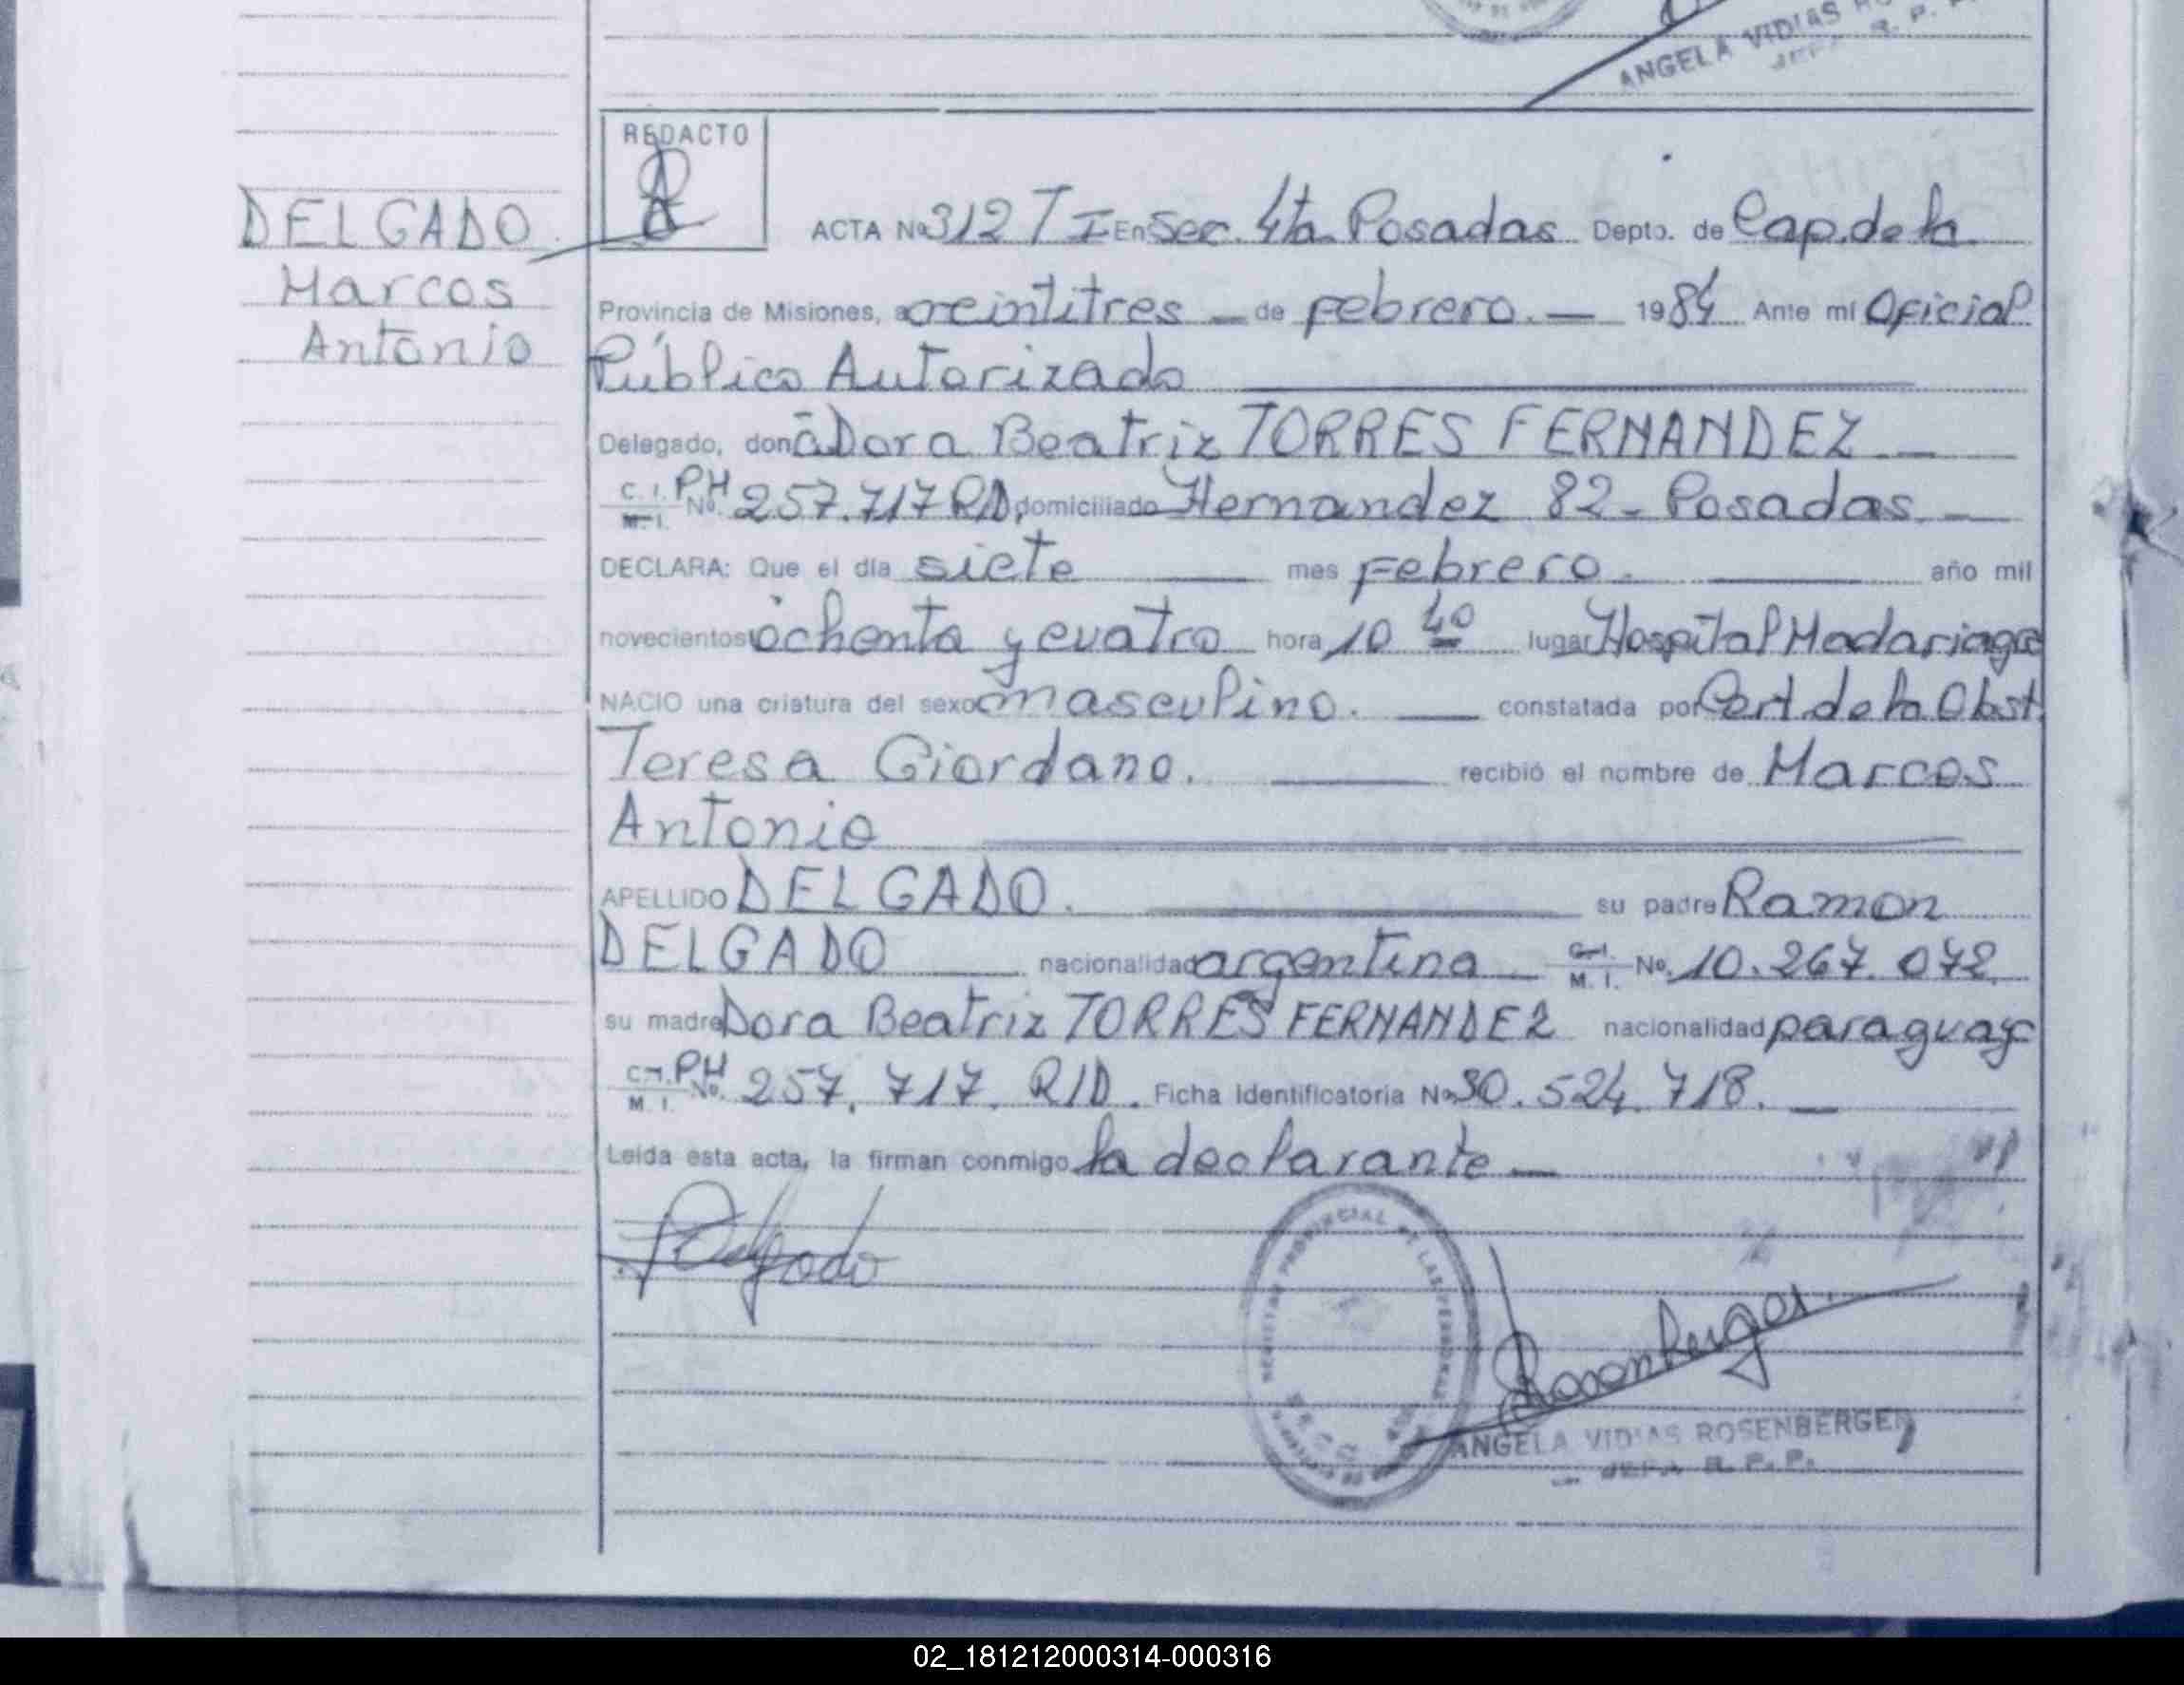 ANGELA VIDIAS
REDACTO
DELGADO
Marcos
Antonio
ACTA No 312 T I En Sec. 4ta Posadas Depto. de Cap. de la
Provincia de Misiones, a veintitres — de febrero. — 1984 Ante mi Oficial
Público Autorizado
Delegado, don ã Dora Beatriz TORRES FERNANDEZ
C. I. M. I. PH No. 257.717 RID, domiciliado Hernandez 82 - Posadas. —
DECLARA: Que el día siete — mes Febrero. — año mil
novecientos ochenta y cuatro hora 10 40 lugar Hospital Madariaga
NACIO una criatura del sexo masculino. — constatada por Cert. de la Obst.
Teresa Giordano. — recibió el nombre de Marcos
Antonio
APELLIDO DELGADO. — su padre Ramon
DELGADO — nacionalidad argentina — C. I. M. I. No. 10.267.072.
su madre Dora Beatriz TORRES FERNANDEZ nacionalidad paraguay
C. I. M. I. PH No. 257.717. RID. Ficha Identificatoria No 30.524.718. —
Leída esta acta, la firman conmigo la declarante —
Delgado
Rosenberger
ANGELA VIDIAS ROSENBERGER
JEFA R. P. P.
02_181212000314-000316